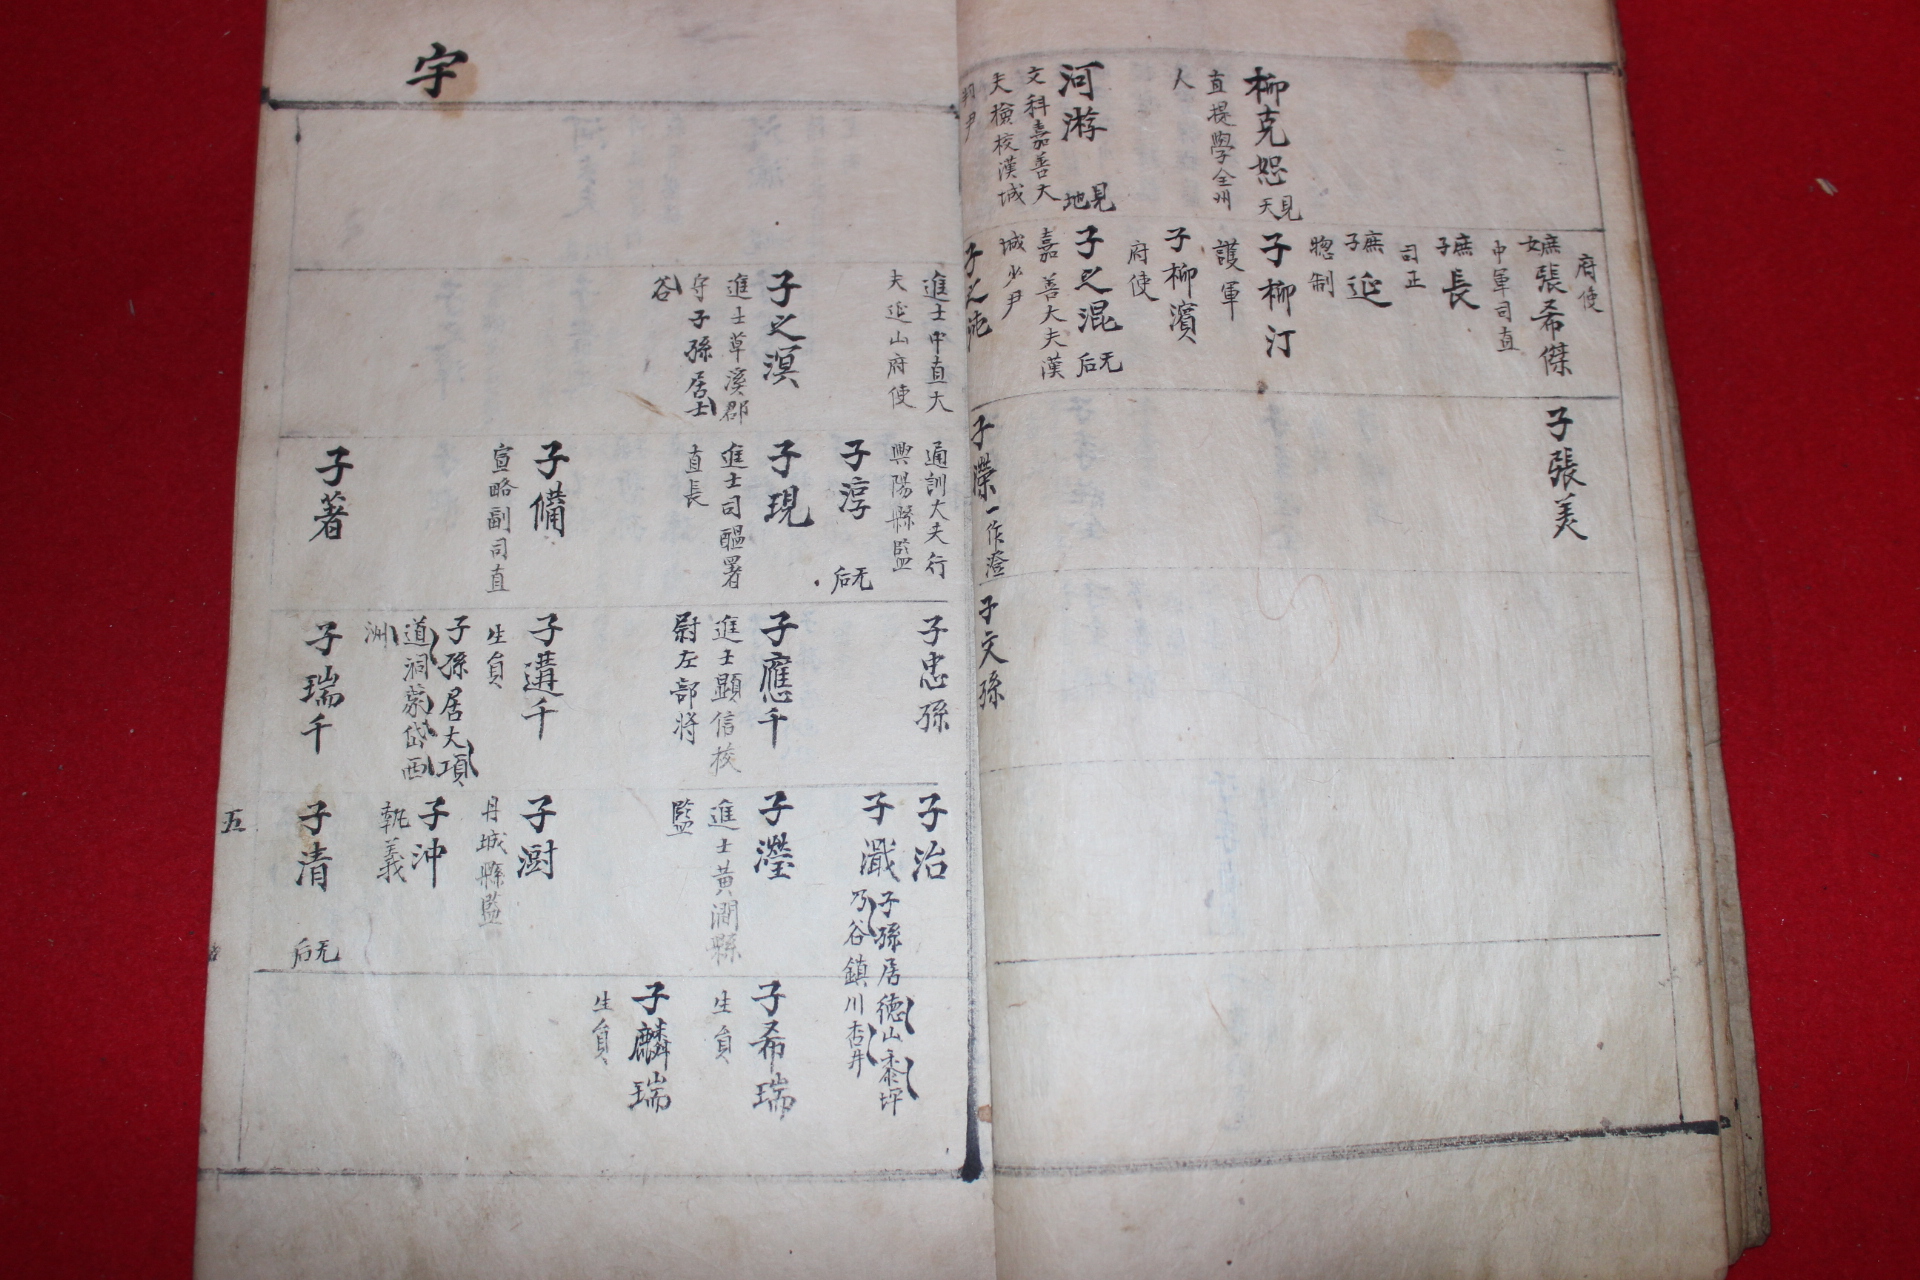 柳克恕 見天
直提學全州
人
河游 見地
文科嘉善大
夫檢校漢城
判尹
府使
庶女張希傑
中軍司直
庶子長
司正
庶子延
摠制
子柳汀
護軍
子柳濱
府使
子之混 无后
嘉善大夫漢
城少尹
子之沌
子張美
子濚 一作澄
子文孫
宇
進士中直大
夫延山府使
子之溟
進士草溪郡
守子孫居士
谷
通訓大夫行
興陽縣監
子淳 无后
子現
進士司醞署
直長
子備
宣略副司直
子著
子忠孫
子應千
進士顯信校
尉左部將
子遘千
生員
子孫居大項
道洞蒙岱西
洲
子瑞千
子治
子濈 子孫居德山黍坪
乃谷鎮川杏井
子瀅
進士黃澗縣
監
子澍
丹城縣監
子沖
執義
子清 无后
子希瑞
生員
子麟瑞
生員
五